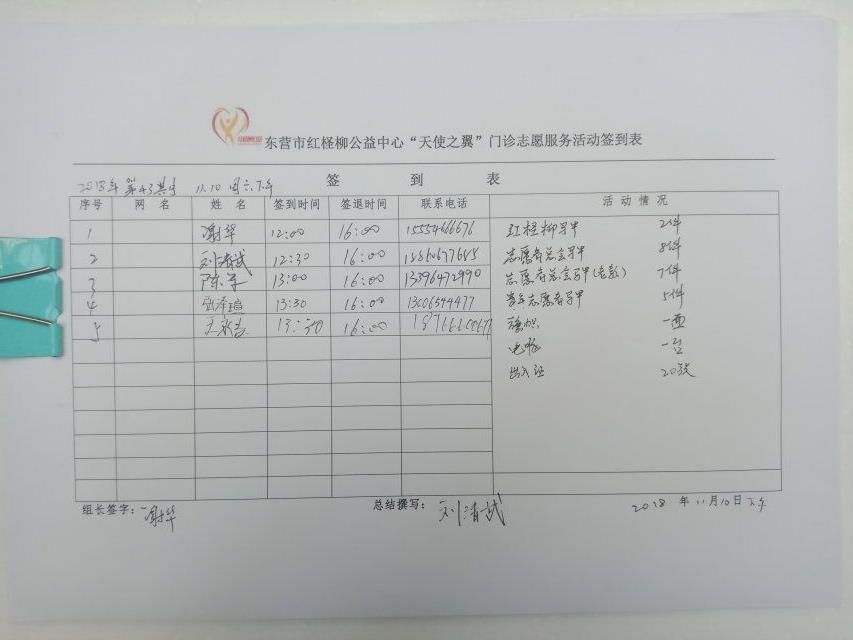 东营市红柽柳公益中心“天使之翼”门诊志愿服务活动签到表
签 到 表
2018年 第43期 11.10 周六下午
序号 网 名 姓 名 签到时间 签退时间 联系电话 活 动 情 况
1 谢华 12:00 16:00 15554666676 红柽柳马甲 2件
2 刘清斌 12:30 16:00 志愿者总会马甲 8件
3 陈 13:00 16:00 志愿者总会马甲(老款) 7件
4 13:30 16:00 青年志愿者马甲 5件
5 13:30 16:00 旗帜 一面
电脑 一台
出入证 20张
组长签字: 谢华 总结撰写: 刘清斌 2018 年 11月10日 下午